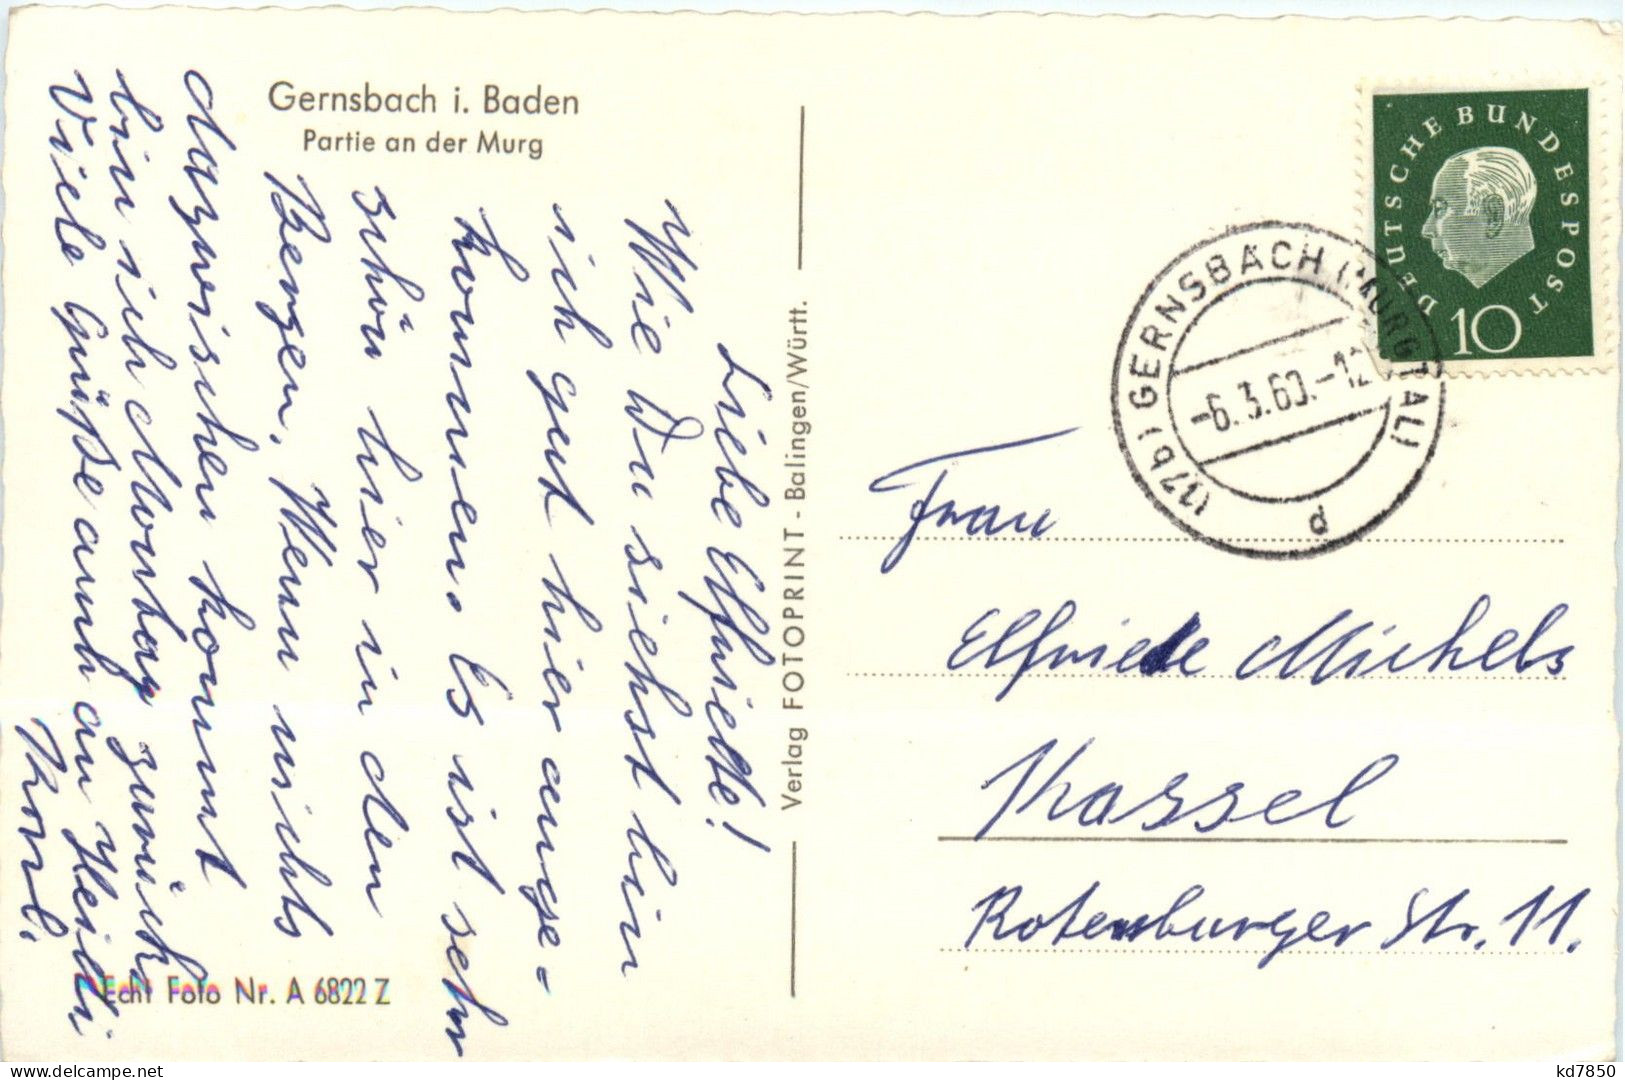 Gernsbach i. Baden
Partie an der Murg
Liebe Elfriede!
Wie Du siehst bin
ich gut hier ange-
kommen. Es ist sehr
schön hier in den
Bergen. Wenn nichts
dazwischen kommt
bin ich Montag zurück.
Viele Grüße auch an Heidi
Verlag FOTOPRINT - Balingen/Württ.
Echt Foto Nr. A 6822 Z
DEUTSCHE BUNDESPOST
10
(17b) GERNSBACH (MURGTAL)
-6.3.60.-12
d
Frau
Elfriede Michels
Kassel
Rotenburger Str. 11.
kd7850